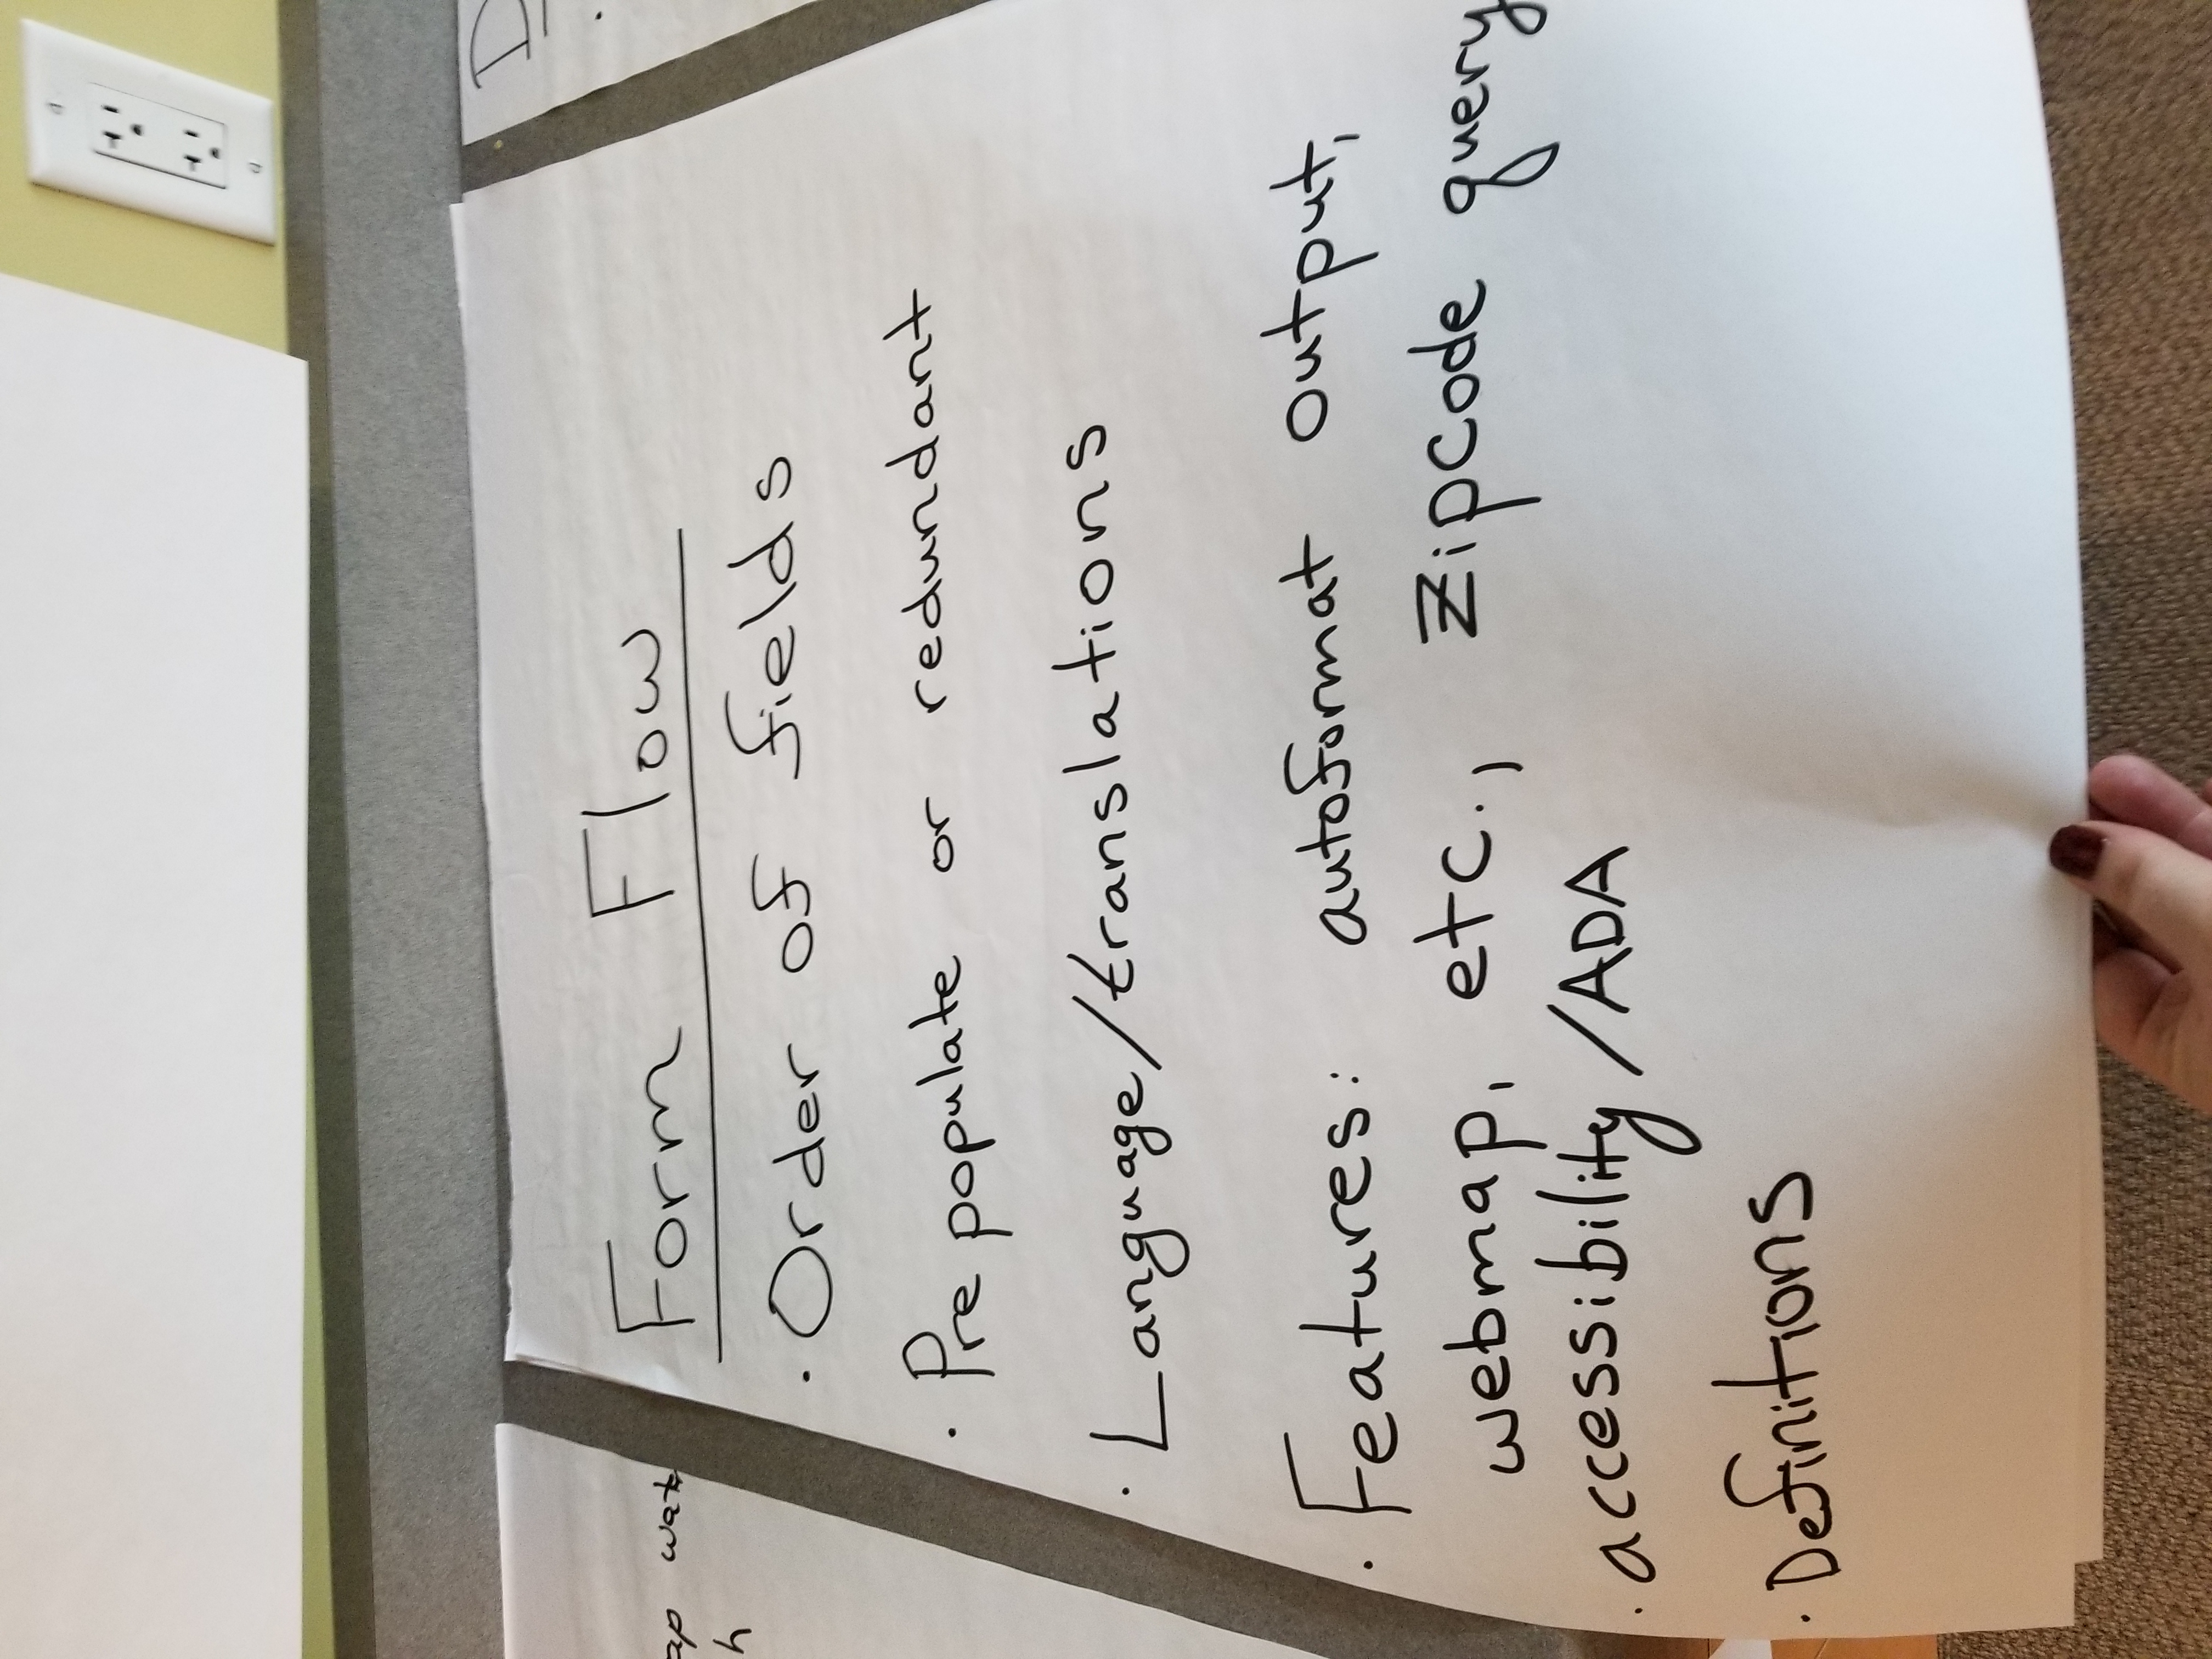 Form Flow
· Order of fields
· Pre populate or redundant
· Language/translations
· Features: autoformat output,
webmap, etc., Zipcode query
· accessibility/ADA
· Definitions
h
D